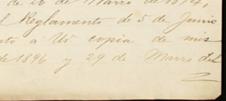 de 20 de Marzo de 1894,
el Reglamento de 5 de Junio
nto a Ud copia de mis
de 1896 y 29 de Marzo del